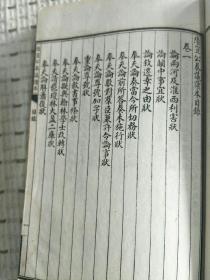 陸宣公奏議讀本目錄
卷一
論兩河及淮西利害狀
論關中事宜狀
論敘遷幸之由狀
奉天論奏當今所切務狀
奉天論前所答奏未施行狀
奉天請數對羣臣兼許令論事狀
奉天論尊號加字狀
重論尊號狀
奉天論赦書事條狀
奉天論擬與翰林學士改轉狀
奉天請罷瓊林大盈二庫狀
奉天論解蕭復狀